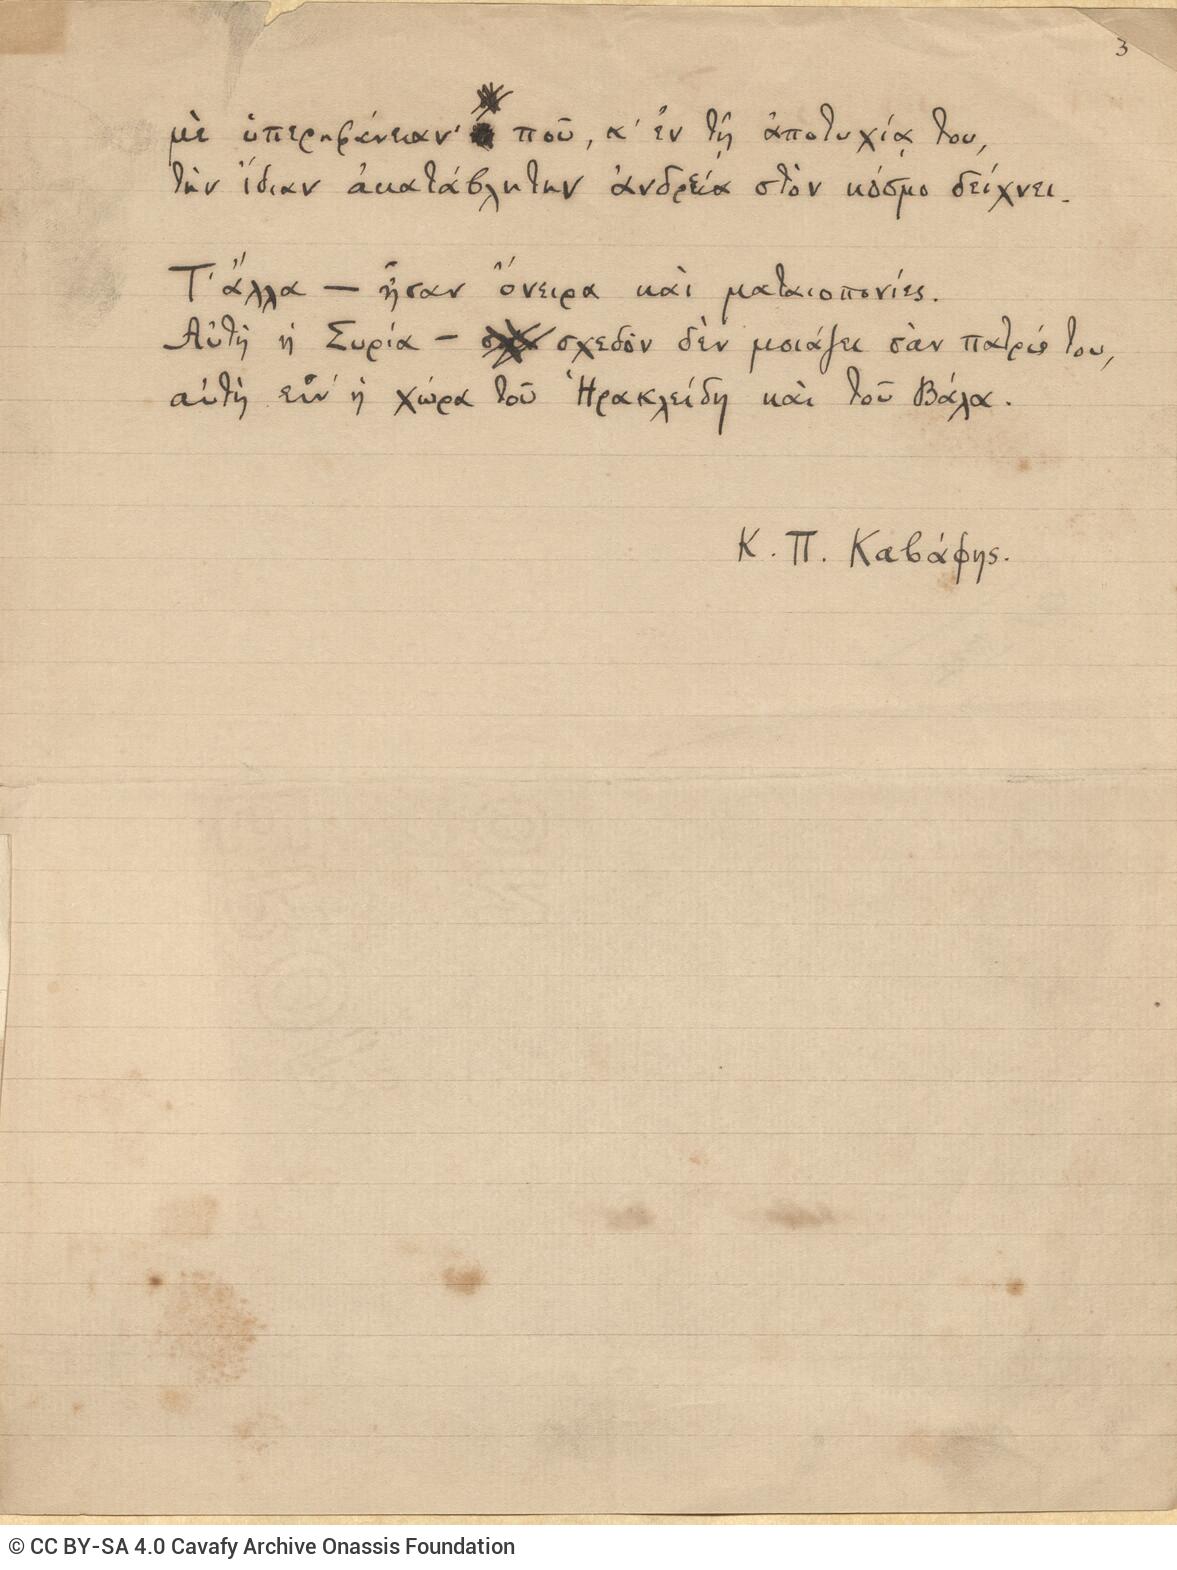 3
μὲ ὑπερηφάνειαν· ποῦ, κ' ἐν τῇ ἀποτυχίᾳ του,
τὴν ἴδιαν ἀκατάβλητην ἀνδρεία στὸν κόσμο δείχνει.
Τ' ἄλλα — ἦσαν ὄνειρα καὶ ματαιοπονίες.
Αὐτὴ ἡ Συρία — σχεδὸν δὲν μοιάζει σὰν πατρίς του,
αὐτὴ εἶν' ἡ χώρα τοῦ Ἡρακλείδη καὶ τοῦ Βάλα.
Κ. Π. Καβάφης.
© CC BY-SA 4.0 Cavafy Archive Onassis Foundation